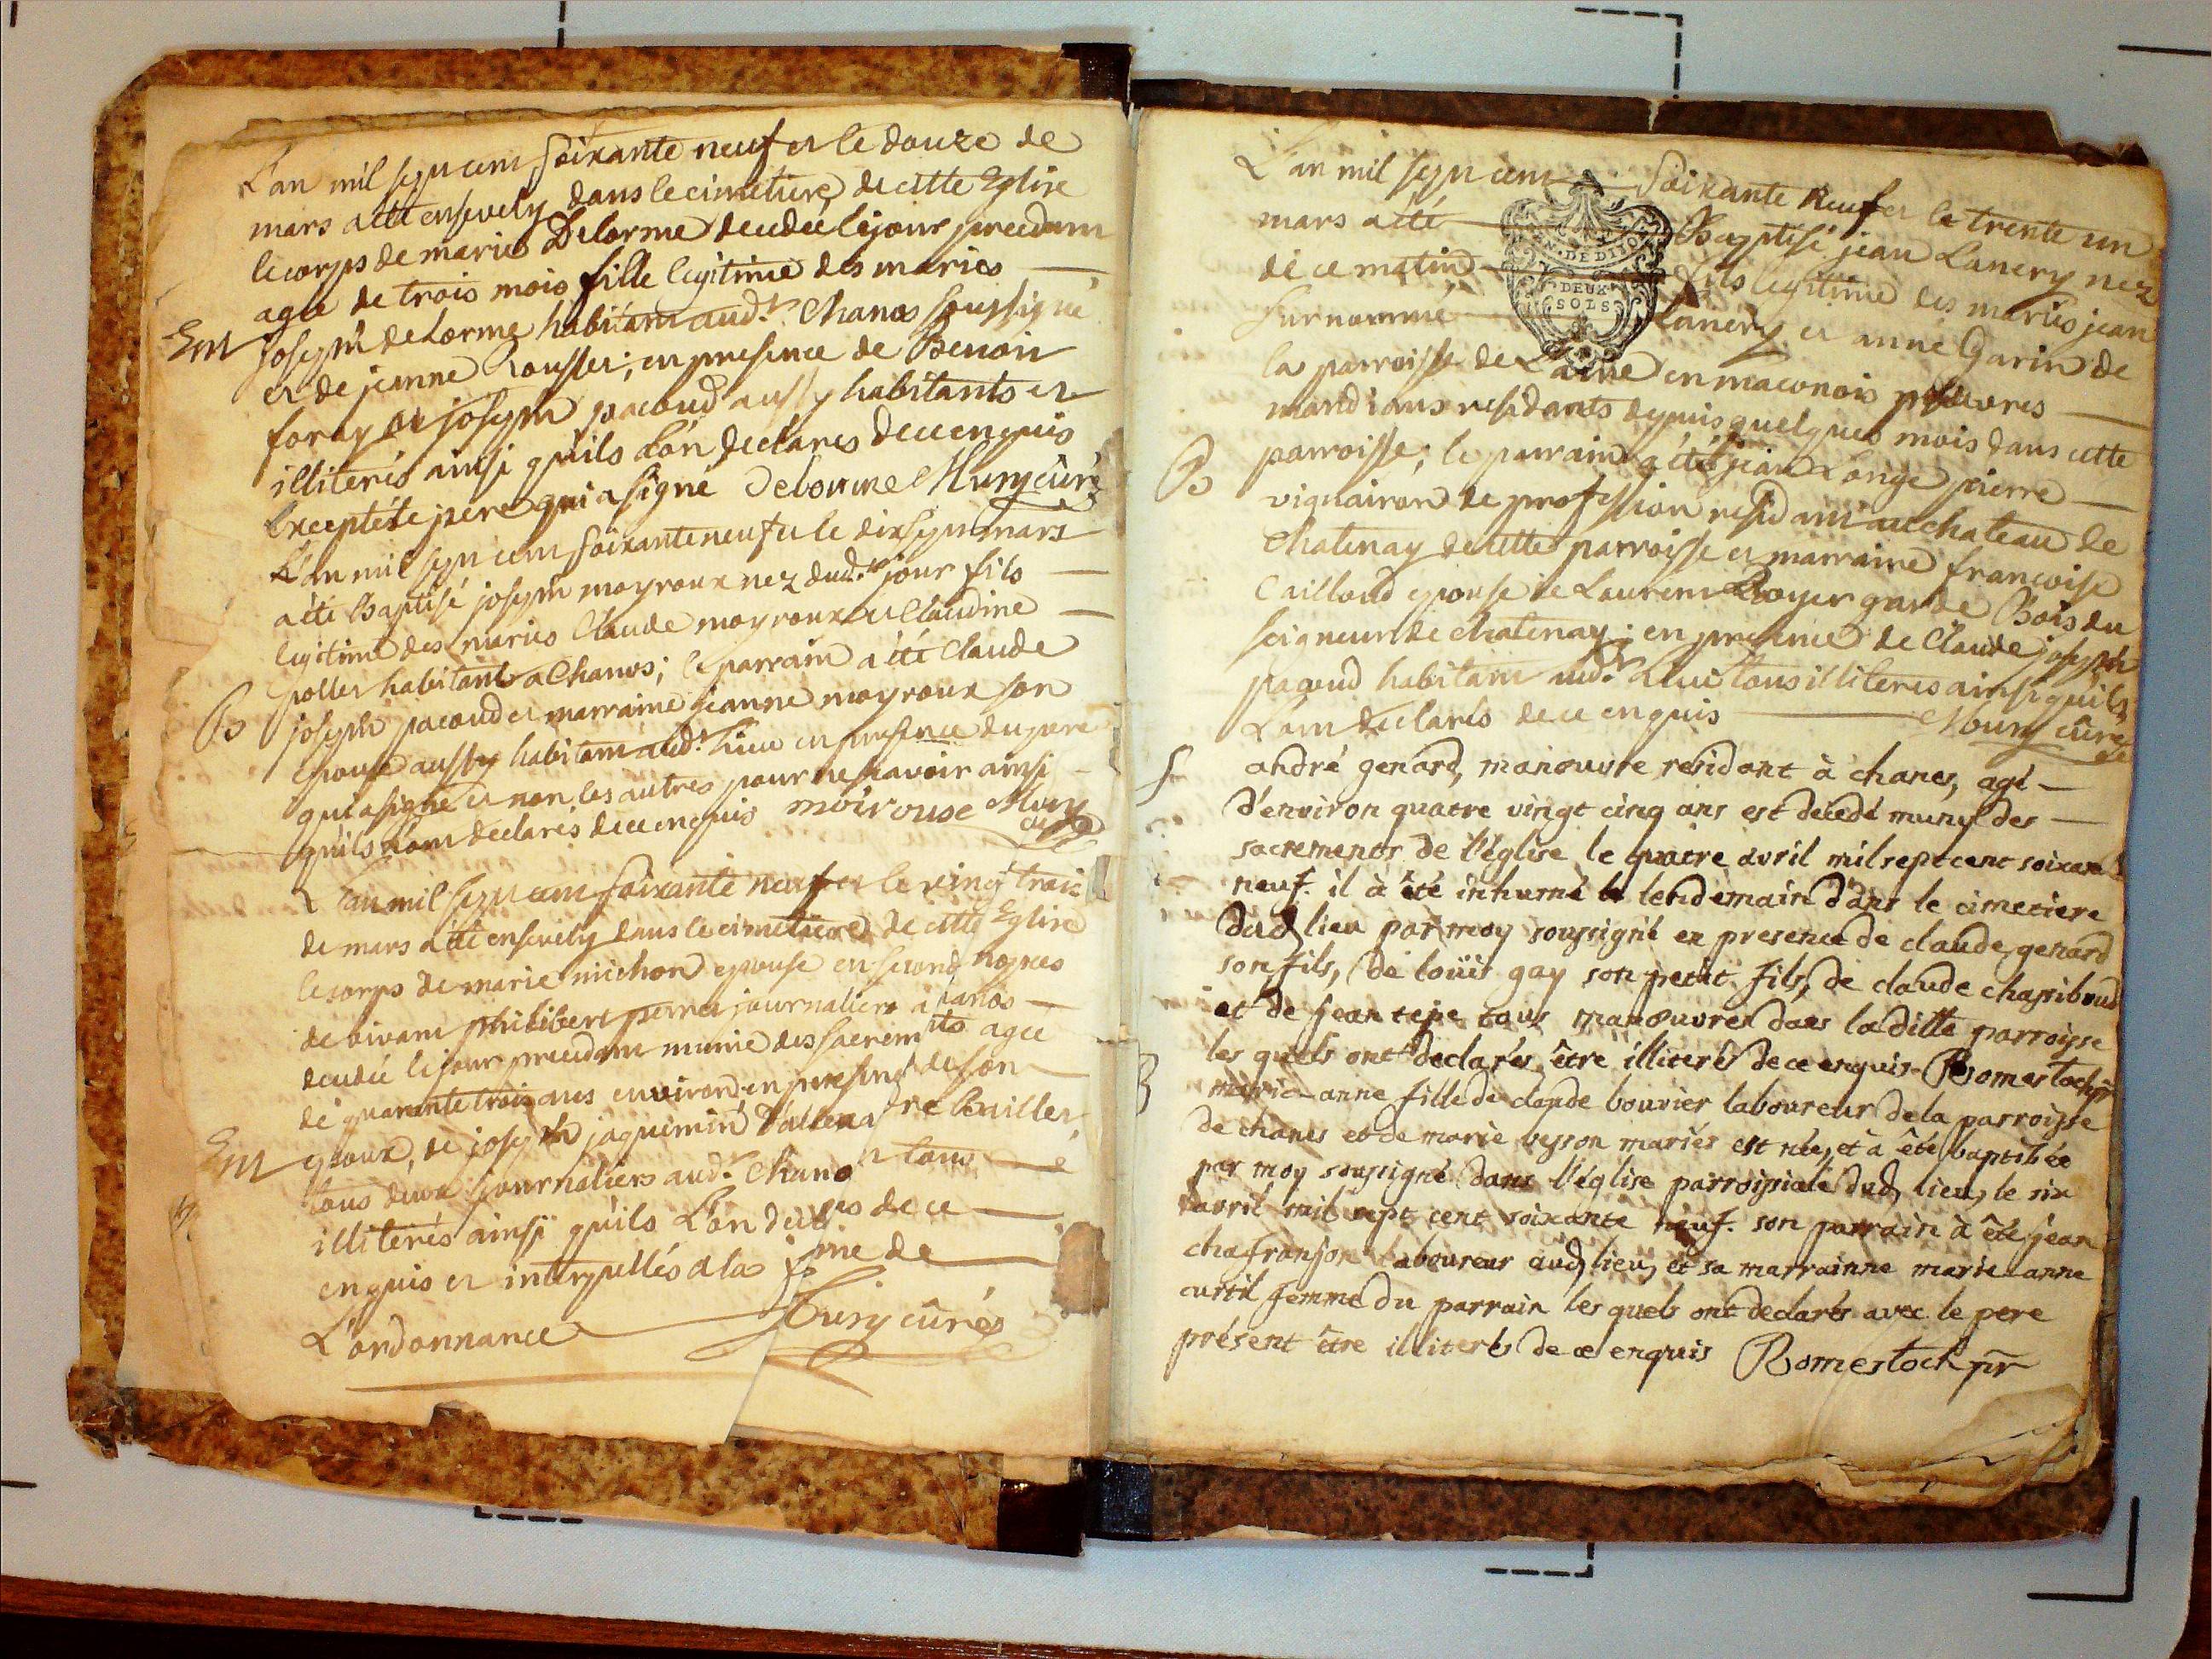 L'an mil sept cent soixante neuf et le douze de
mars a été ensevely dans le cimetiere de cette Eglise
le corps de marie Delorme decedée le jour precedent
agée de trois mois fille legitime des mariés
Em joseph deLorme habitant aud.t Chanos soussigné
et de jeanne Rousset; en presence de Benoit
foray et joseph pacoud aussy habitants et
illiterés ainsi qu'ils L'on declarés de ce enquis
Excepté le pere qui a signé Delorme Mury curé
L'an mil sept cent soixante neuf et le dix sept mars
a été Baptisé joseph moyroux nez dud.t jour fils
legitime des mariés Claude moyroux et Claudine
pollet habitants a Chanos; le parrain a été Claude
B joseph pacoud et marraine jeanne moyroux son
epouse aussy habitant aud.t Lieu en presence du pere
qui a signé et non les autres pour ne savoir ainsi
qu'ils L'ont declarés de ce enquis moirouse Mury
curé
L'an mil sept cent soixante neuf et le vingt trois
de mars a été ensevely dans le cimetiere de cette Eglise
le corps de marie michon epouse en second nopces
de vivant philibert perret journaliers a Chanos
decedée le jour precedent munie des sacrements agée
de quarante trois ans environ en presence de son
Em epoux, de joseph jaquemin re Bailler
tous deux journaliers aud.t Chano tous
illiterés ainsi qu'ils L'on de ce
enquis et interpellés a la forme de
L'ordonnance Mury curé
L'an mil sept cent soixante neuf et le trente un
mars a été Baptisé jean Lanery nez
de ce matin fils legitime des mariés jean
surnommé Lanery et anne Garin de
la parroisse de en maconois pauvres
mandians residants depuis quelques mois dans cette
B parroisse; le parrain a été jean Longe pierre
vignairon de profession residant au chateau de
Chatenay de cette parroisse et marraine francoise
Caillaud epouse de Laurent Royer garde Bois du
seigneur de chatenay; en presence de Claude joseph
pacoud habitant aud.t Lieu tous illiterés ainsi qu'ils
L'ont declarés de ce enquis Mury curé
S andré genard, manouvre residant à chanes, agé
d'environ quatre vingt cinq ans est decedé muny des
sacrements de l'église le quatre avril mil sept cent soixante
neuf. il à été inhumé le lendemain dans le cimetiere
dud lieu par moy soussigné en presence de claude genard
son fils, de loüis gay son petit fils, de claude chassiboud
et de jean tepe tous manouvres dans la ditte parroisse
les quels ont declarés être illiterés de ce enquis Romestoch pr
B marie-anne fille de claude bouvier laboureur de la parroisse
de chanes et de marie veyson mariés est née, et à été baptisée
par moy soussigné dans l'église parroissiale dud lieu, le six
avril mil sept cent soixante neuf. son parrain à été jean
chafranjon laboureur aud lieu, et sa marrainne marie-anne
curtil femme du parrain les quels ont declarés avec le pere
présent être illiterés de ce enquis Romestoch pr
GEN. DE DIJON
DEUX
SOLS